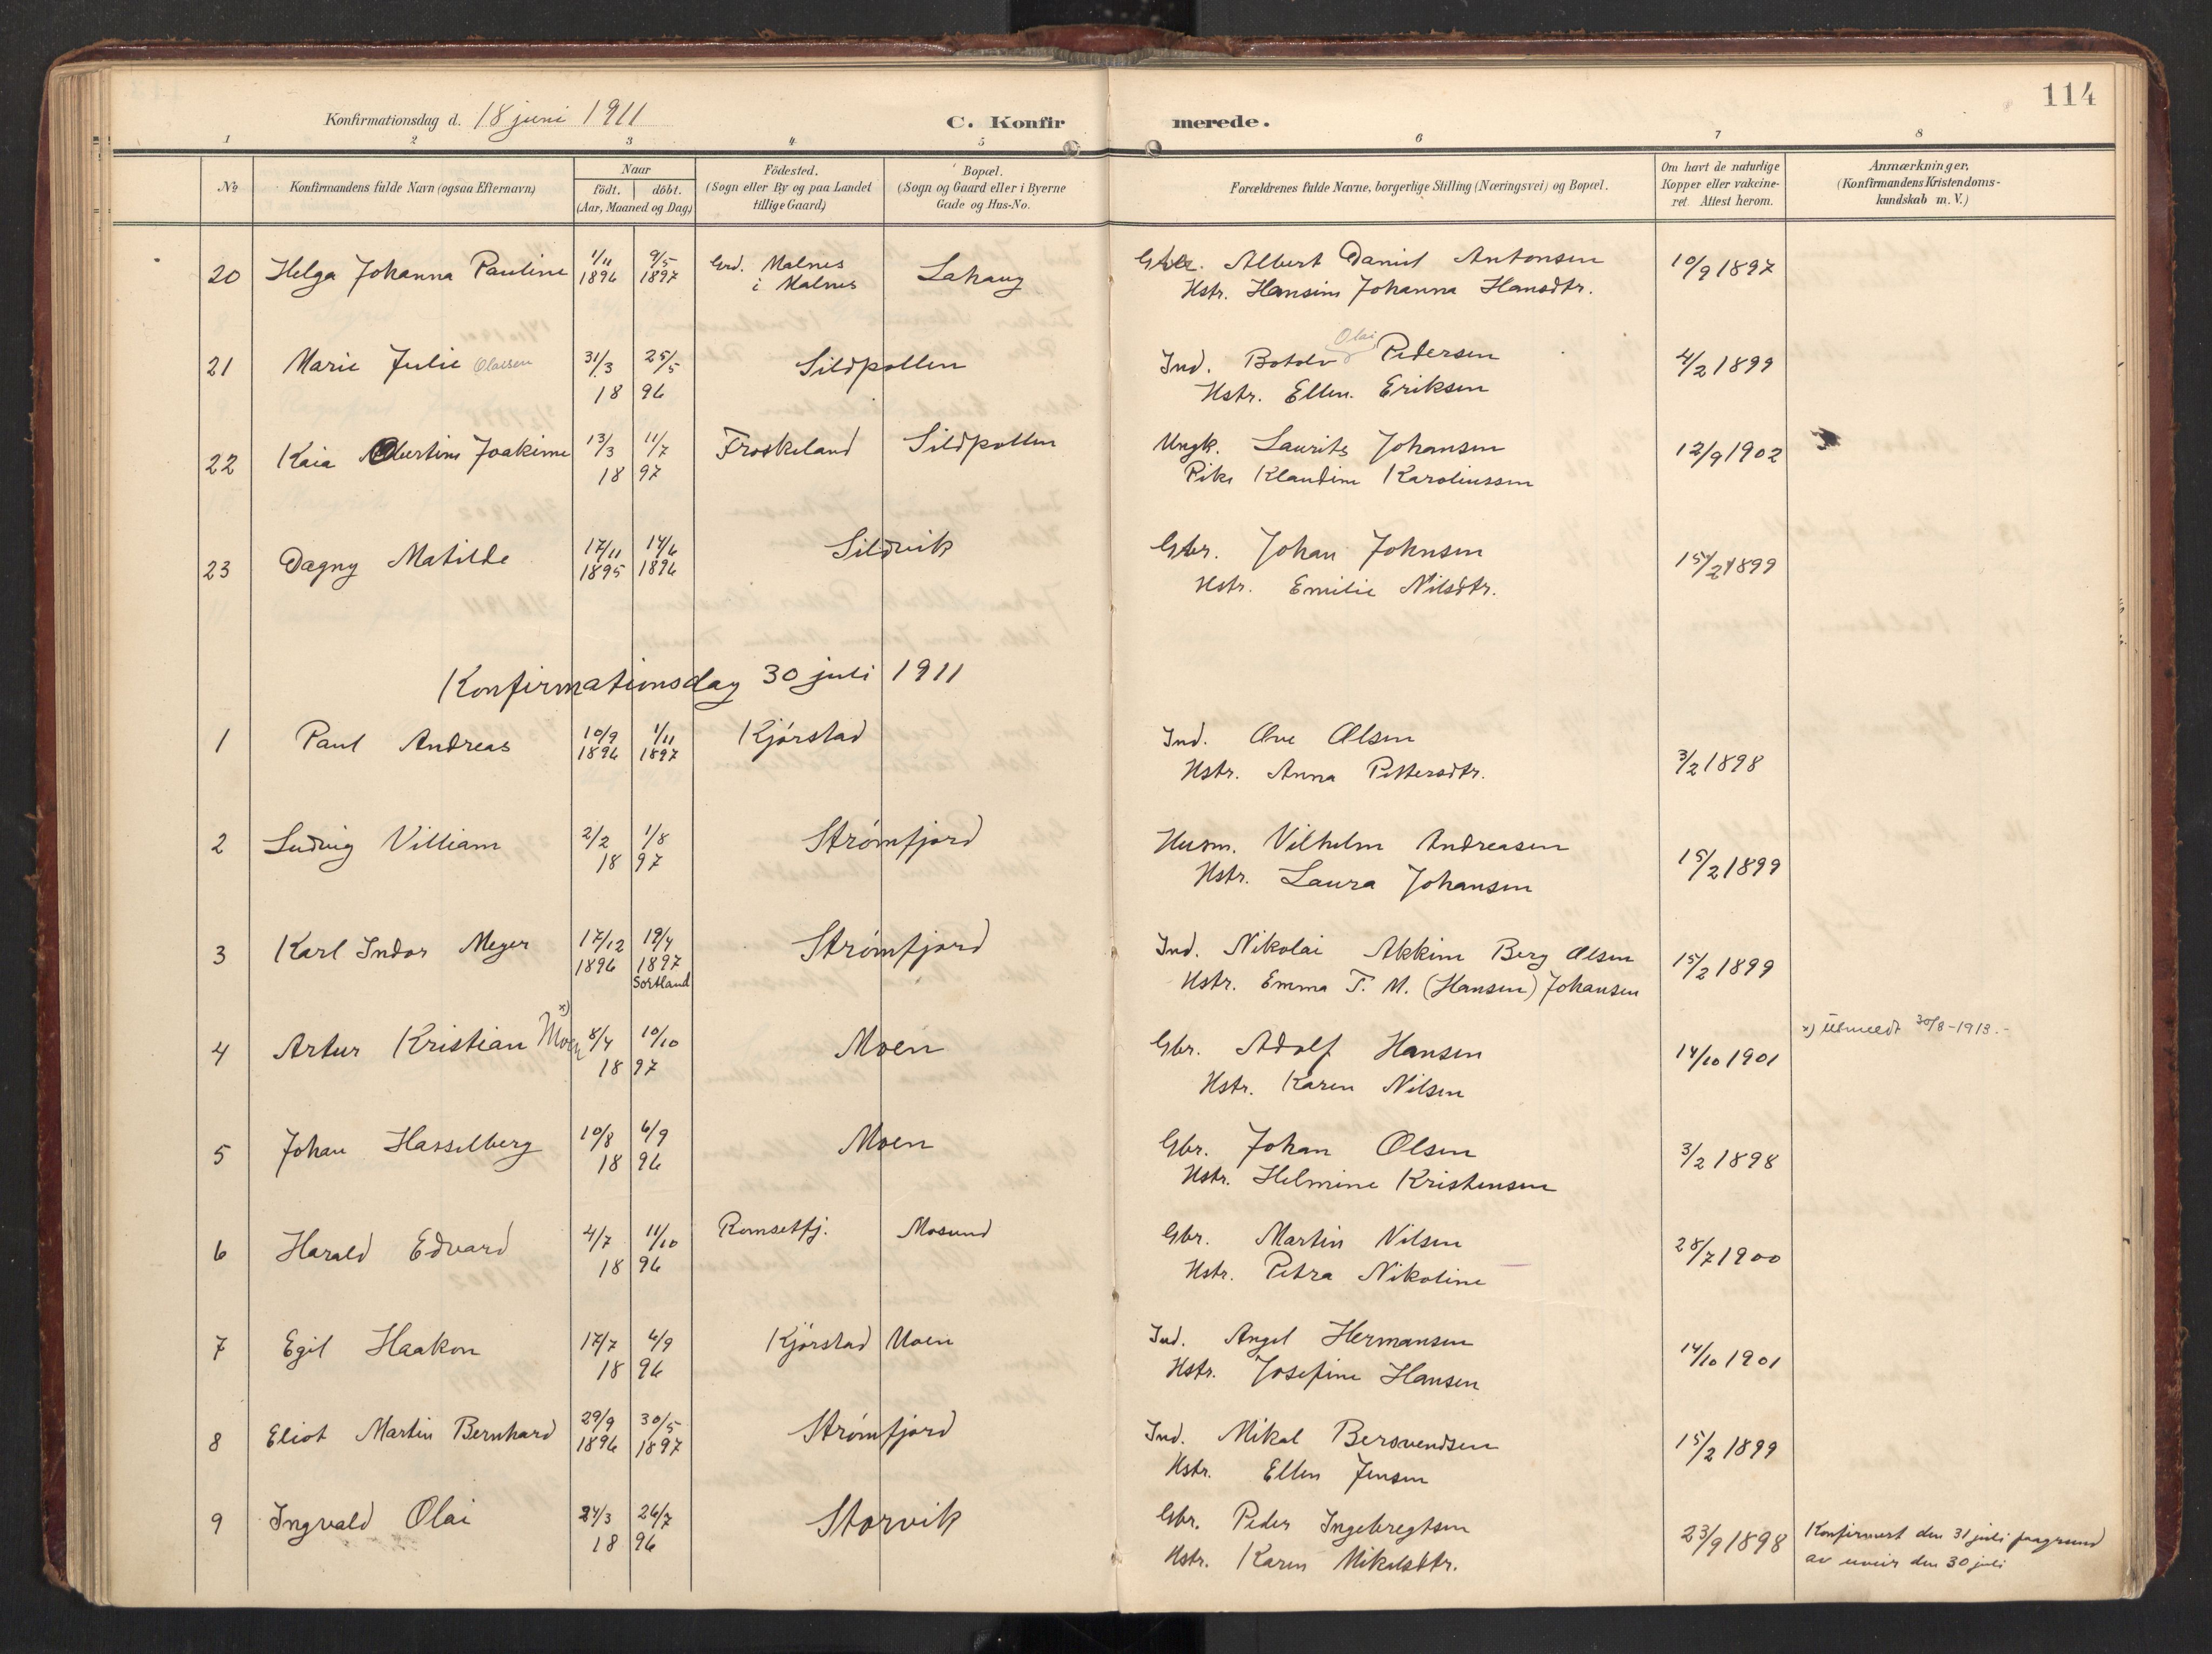 114
Konfirmationsdag d. 18 juni 1911
C. Konfir merede.
1 2 3 4 5 6 7 8
No
Konfirmandens fulde Navn (ogsaa Efternavn)
Naar
födt. döbt.
(Aar, Maaned og Dag)
Födested.
(Sogn eller By og paa Landet
tillige Gaard)
Bopæl.
(Sogn og Gaard eller i Byerne
Gade og Hus-No.
Forældrenes fulde Navne, borgerlige Stilling (Næringsvei) og Bopæl.
Om havt de naturlige
Kopper eller vakcine-
ret. Attest herom.
Anmærkninger,
(Konfirmandens Kristendoms-
kundskab m. V.)
20 Helga Johanna Pauline 1/11 1896 9/5 1897 Grd. Malnes i Malnes Lahaug
Albert Daniel Antonsen
Hstr. Hansine Johanna Hansdtr.
10/9 1897
21 Marie Julie Olaisen 31/3 25/5 18 96 Sildpollen
Ind. Botolv Olai Pedersen
Hstr. Ellen. Eriksen
4/2 1899
22 Kaia Albertine Joakime 13/3 11/7 18 97 Froskeland Sildpollen
Ungk. Laurits Johansen
Pike Klaudine Karoliussen
12/9 1902
23 Dagny Matilde 17/11 1895 14/6 1896 Sildvik
Gbr. Johan Johnsen
Hstr. Emilie Nilsdtr.
15/2 1899
Konfirmationsdag 30 juli 1911
1 Paul Andreas 10/9 1896 1/11 1897 Kjørstad
Ind. Ove Olsen
Hstr. Anna Pettersdtr.
3/2 1898
2 Ludvig Villiam 2/2 1/8 18 97 Strømfjord
Husm. Vilhelm Andreasen
Hstr. Laura Johansen
15/2 1899
3 Karl Indor Meyer 17/12 1896 19/4 1897 Sortland Strømfjord
Ind. Nikolai Akkim Berg Olsen
Hstr. Emma T. M. (Hansen) Johansen
15/2 1899
4 Artur Kristian Moen x) 8/4 10/10 18 97 Moen
Gbr. Adolf Hansen
Hstr. Karen Nilsen
14/10 1901
x) Utmeldt 30/8-1913.-
5 Johan Hasselberg 10/8 6/9 18 96 Moen
Gbr. Johan Olsen
Hstr. Helmine Kristensen
3/2 1898
6 Harald Edvard 4/7 11/10 18 96 Romsetfj. Mosund
Gbr. Martin Nilsen
Hstr. Petra Nikoline
28/7 1900
7 Egil Haakon 17/7 6/9 18 96 Kjørstad Moen
Ind. Angel Hermansen
Hstr. Josefine Hansen
14/10 1901
8 Eliot Martin Bernhard 29/9 1896 30/5 1897 Strømfjord
Ind. Mikal Bersvendsen
Hstr. Ellen Jensen
15/2 1899
9 Ingvald Olai 24/3 26/7 18 96 Storvik
Gbr. Peder Ingebregtsen
Hstr. Karen Mikalsdtr.
23/9 1898
Konfirmert den 31 juli paagrund
av uveir den 30 juli